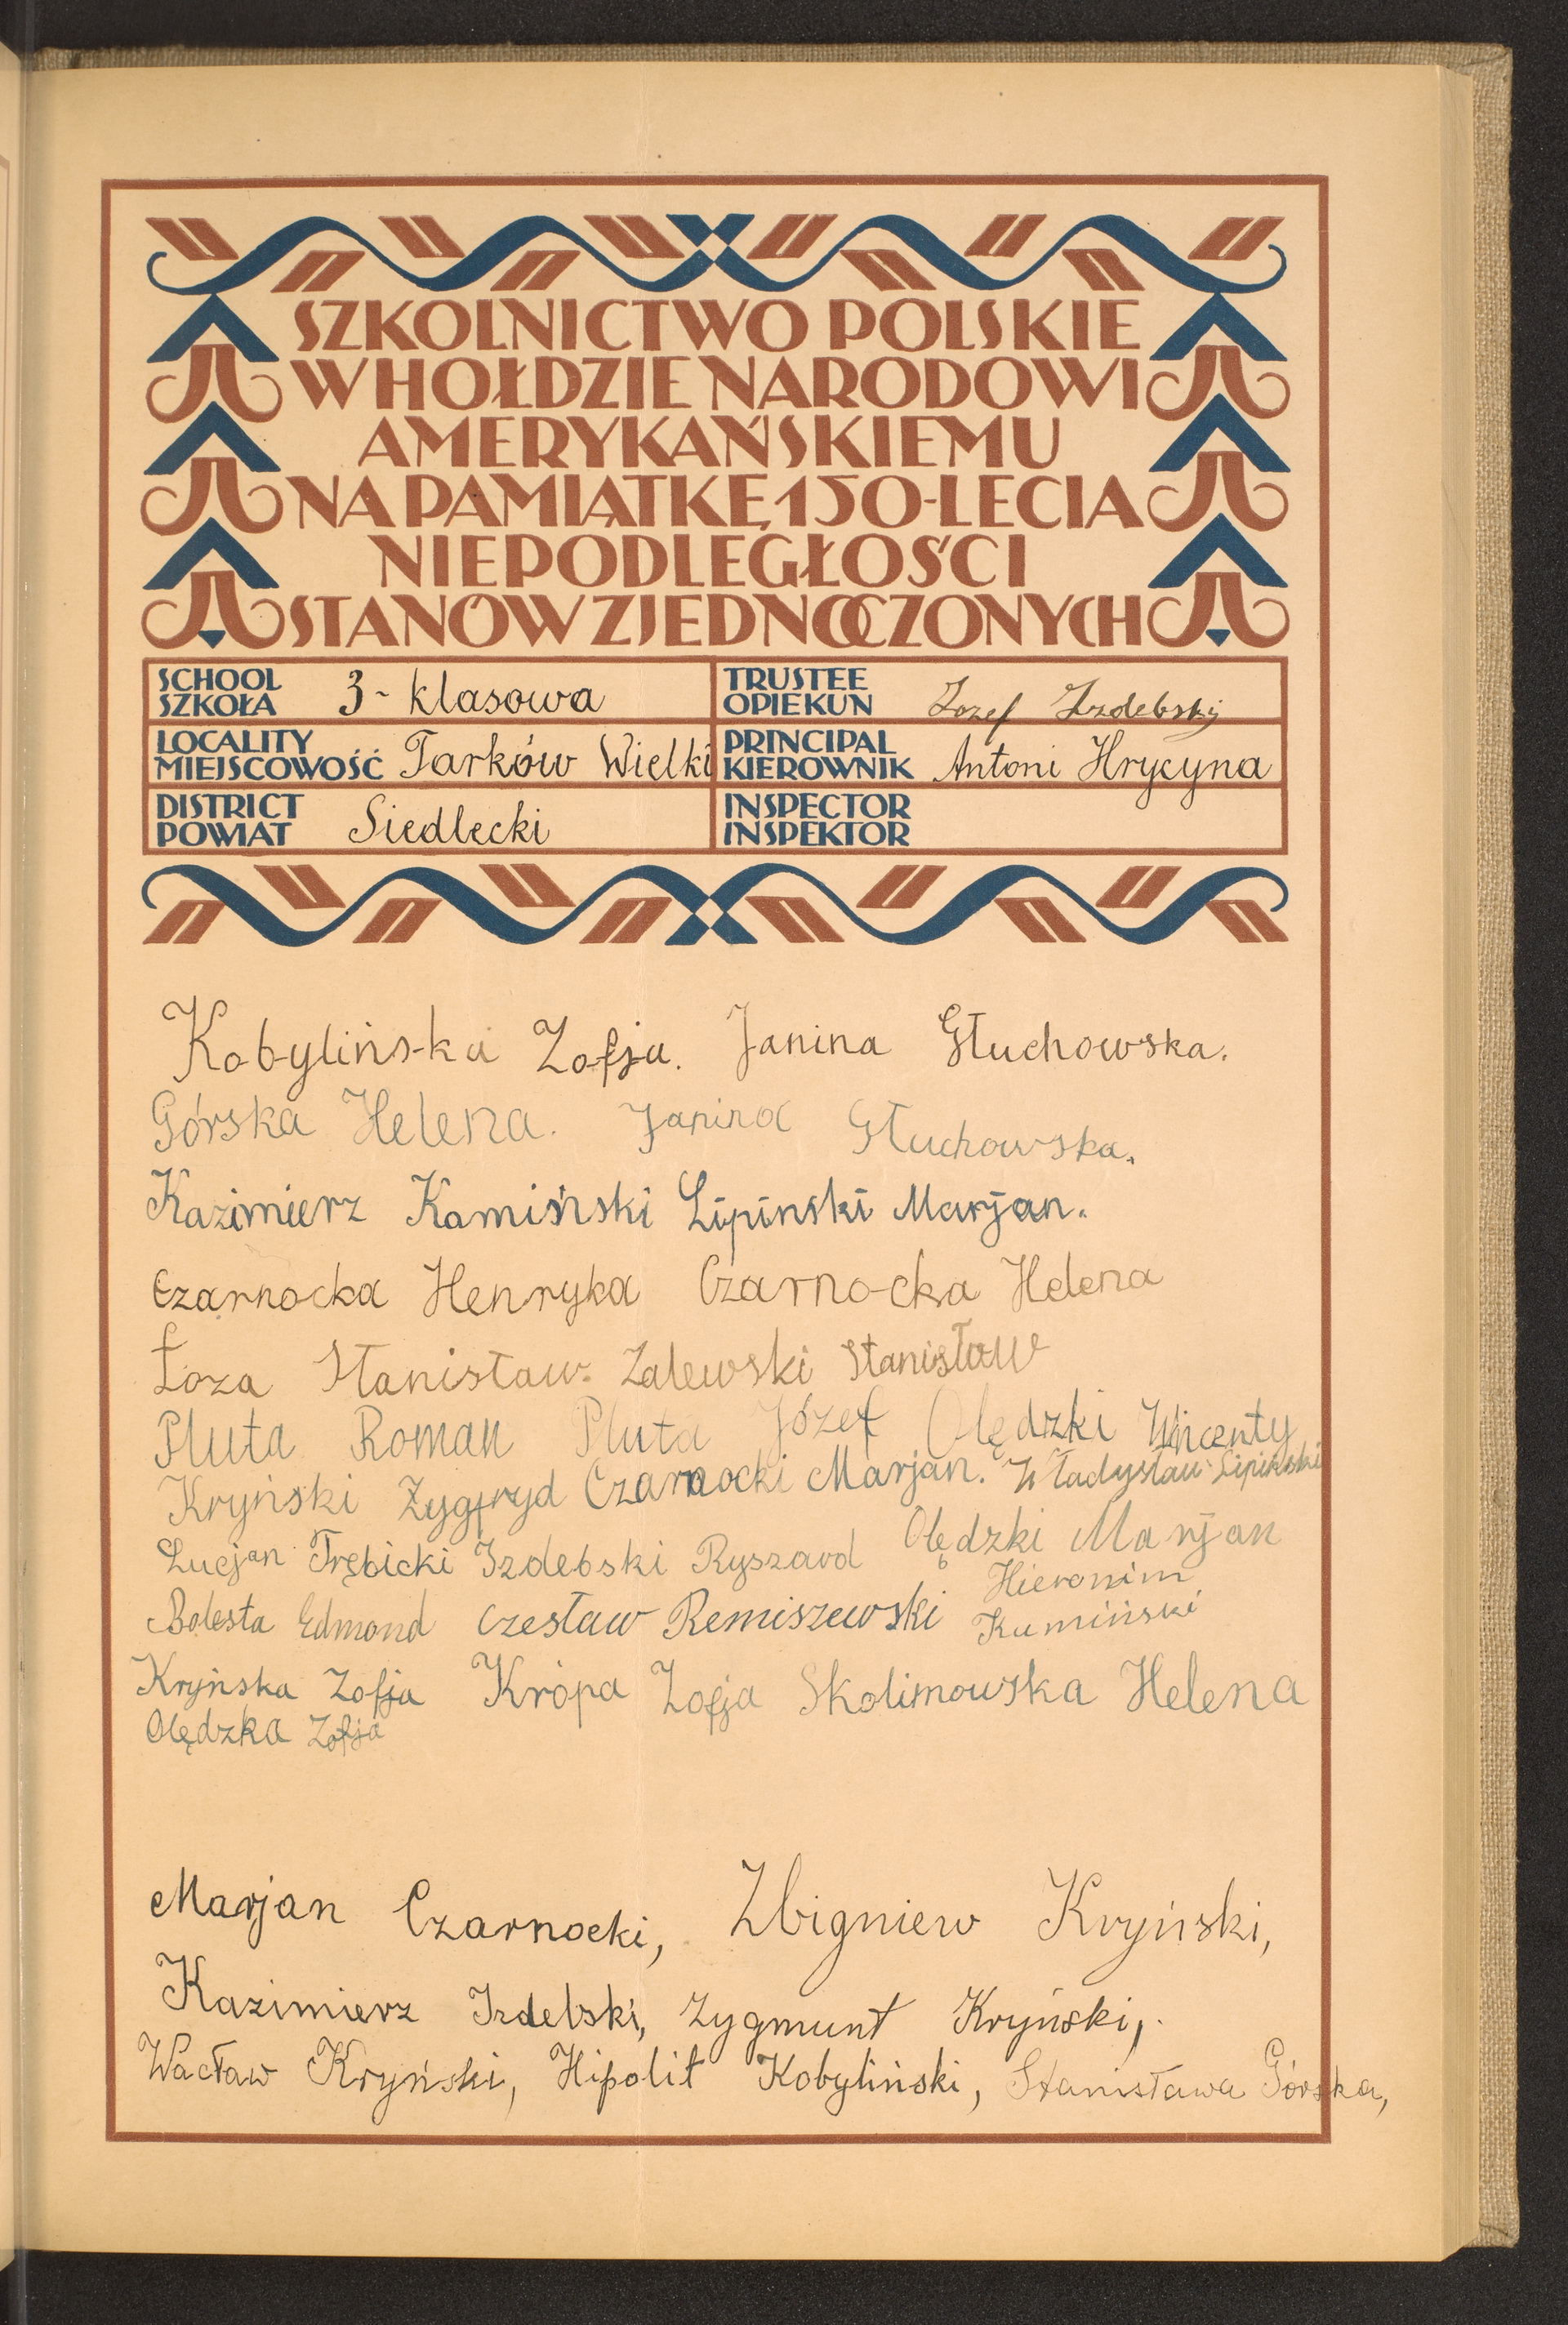 SZKOLNICTWO POLSKIE
W HOŁDZIE NARODOWI
AMERYKAŃSKIEMU
NA PAMIĄTKĘ 150-LECIA
NIEPODLEGŁOŚCI
STANÓW ZJEDNOCZONYCH
SCHOOL
SZKOŁA 3-klasowa
TRUSTEE
OPIEKUN Józef Izdebski
LOCALITY
MIEJSCOWOŚĆ Tarków Wielki
PRINCIPAL
KIEROWNIK Antoni Hrycyna
DISTRICT
POWIAT Siedlecki
INSPECTOR
INSPEKTOR
Kobylińska Zofja. Janina Głuchowska.
Górska Helena. Janina Głuchowska.
Kazimierz Kamiński Lipinski Marjan.
Czarnocka Henryka Czarnocka Helena
Łoza Stanisław. Zalewski Stanisław
Pluta Roman Pluta Józef Olędzki Wincenty
Kryński Zygfryd Czarnocki Marjan. Władysław Lipiński
Lucjan Trębicki Izdebski Ryszard Olędzki Marjan
Bolesta Edmond Czesław Remiszewski Hieronim Kumiński
Kryńska Zofja Krópa Zofja Skolimowska Helena
Olędzka Zofja
Marjan Czarnocki, Zbigniew Kryński,
Kazimierz Izdebski, Zygmunt Kryński,
Wacław Kryński, Hipolit Kobyliński, Stanisława Górska,